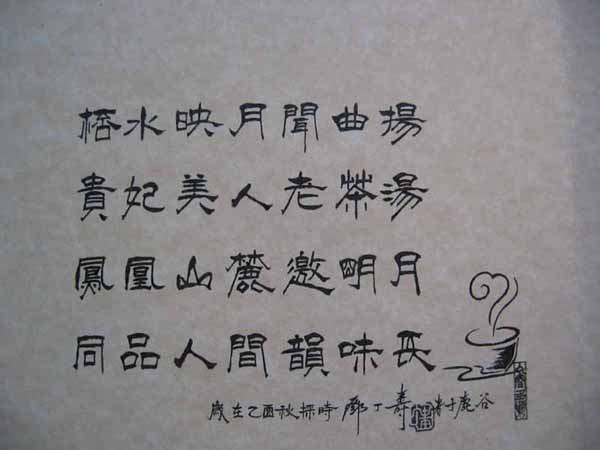 桮水映月聞曲揚
貴妃美人老茶湯
鳳凰山麓邀明月
同品人間韻味長
歲在乙酉秋採時 丁壽 於鹿谷